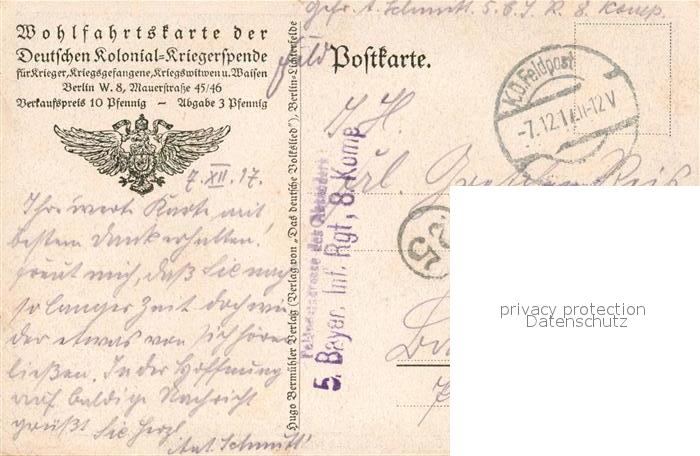 Gefr. A. Schmitt 5. B. I. R. 8. Komp.
Wohlfahrtskarte der
Deutschen Kolonial=Kriegerspende
für Krieger, Kriegsgefangene, Kriegswitwen u. Waisen
Berlin W. 8, Mauerstraße 45/46
Verkaufspreis 10 Pfennig — Abgabe 3 Pfennig
7. XII. 17.
Ihre werte Karte mit
bestem Dank erhalten!
Freut mich, daß Sie nach
so langer Zeit doch wie
der etwas von sich hören
ließen. In der Hoffnung
auf baldige Nachricht
grüßt Sie herzl.
Ant. Schmitt
Hugo Bermühler Verlag (Verlag von „Das deutsche Volkslied“), Berlin-Lichterfelde
Feld
Postkarte.
K.D. Feldpost
-7.12.17 11-12V
5. Bayer. Inf. Rgt, 8. Komp
25
privacy protection
Datenschutz